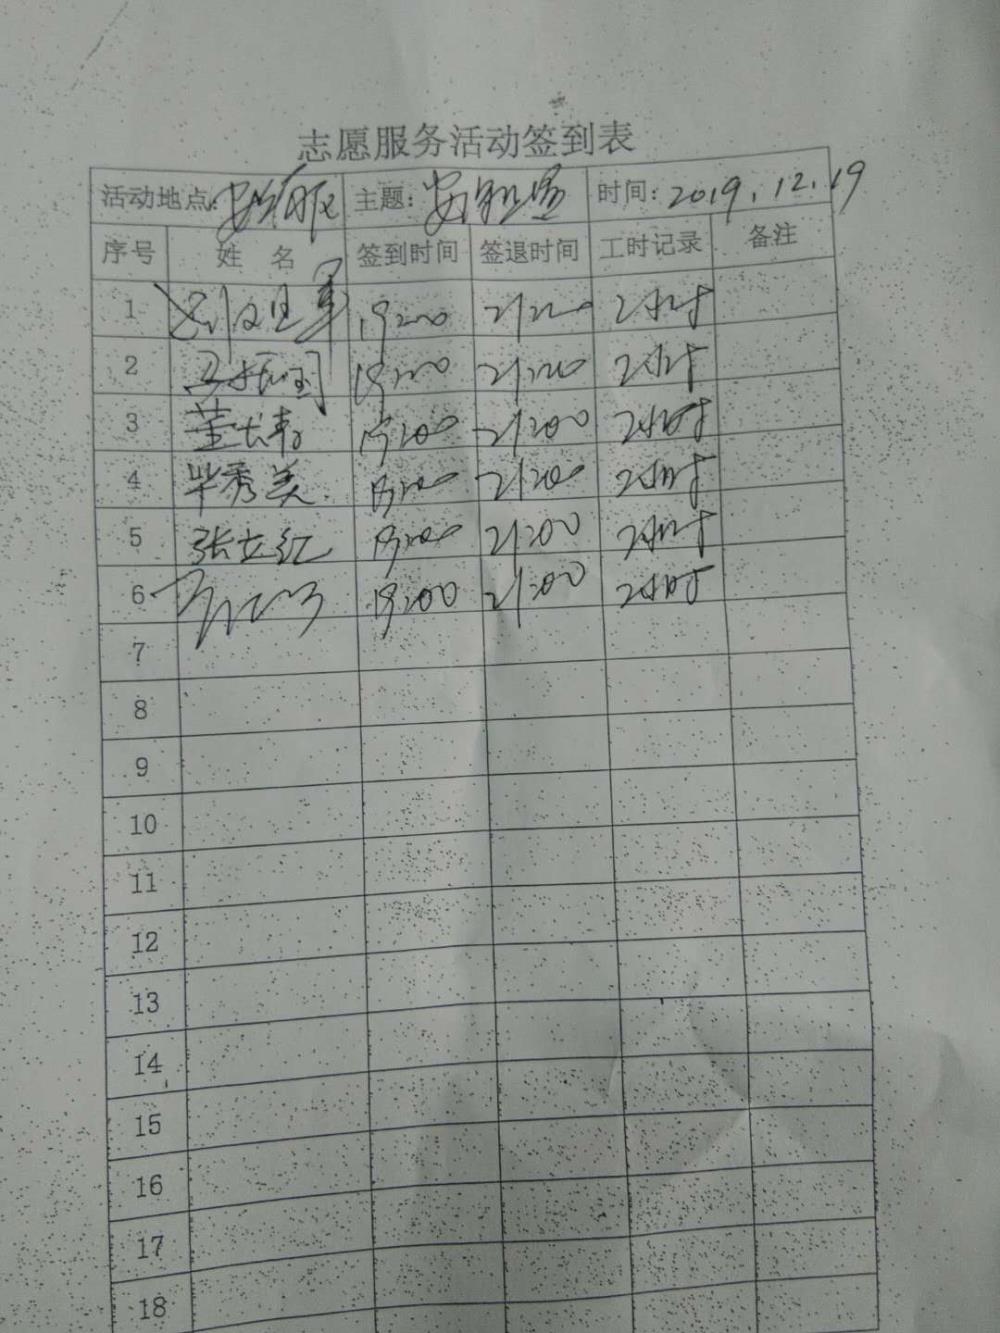 志愿服务活动签到表
活动地点: 主题: 安 时间: 2019.12.19
序号 姓 名 签到时间 签退时间 工时记录 备注
1 19:00 21:00 2小时
2 19:00 21:00 2小时
3 董 19:00 21:00 2小时
4 毕秀美 19:00 21:00 2小时
5 张立红 19:00 21:00 2小时
6 19:00 21:00 2小时
7
8
9
10
11
12
13
14
15
16
17
18